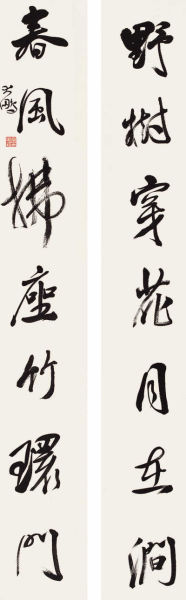 野樹穿花月在澗
春風拂座竹環門
大鵬